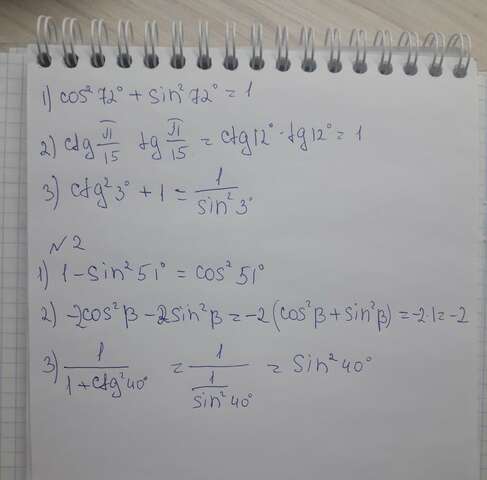 1) cos²72° + sin²72° = 1
2) ctg π/15 tg π/15 = ctg12° · tg12° = 1
3) ctg²3° + 1 = 1/sin²3°
№2
1) 1 - sin²51° = cos²51°
2) -2cos²β - 2sin²β = -2(cos²β + sin²β) = -2·1 = -2
3) 1/(1 + ctg²40°) = 1/(1/sin²40°) = sin²40°